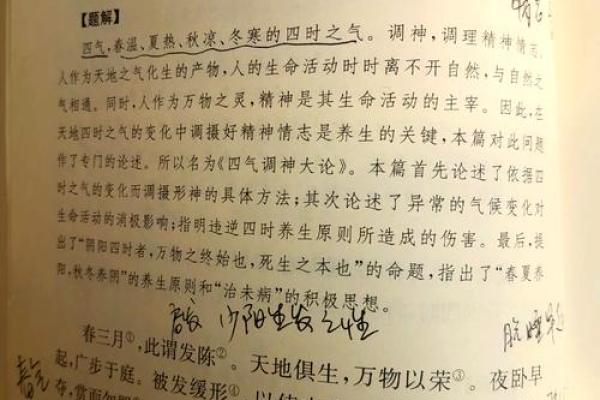 【题解】
四气，春温、夏热、秋凉、冬寒的四时之气。调神，调理精神情志。
人作为天地之气化生的产物，人的生命活动时时离不开自然，与自然之
气相通。同时，人作为万物之灵，精神是其生命活动的主宰。因此，在
天地四时之气的变化中调摄好精神情志是养生的关键，本篇对此问题
作了专门的论述。所以名为《四气调神大论》。本篇首先论述了依据四
时之气的变化而调摄形神的具体方法；其次论述了异常的气候变化对
生命活动的消极影响；指明违逆四时养生原则所造成的伤害。最后，提
出了“阴阳四时者，万物之终始也，死生之本也”的命题，指出了“春夏养
阳，秋冬养阴”的养生原则和“治未病”的积极思想。
少阳生发之性
春三月①，此谓发陈②。天地俱生，万物以荣③。夜卧早
起，广步于庭。被发缓形④